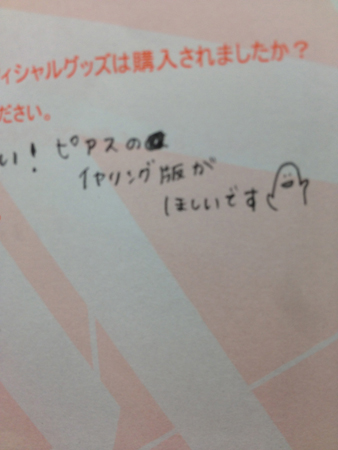 ィシャルグッズは購入されましたか？
ださい。
い！ ピアスの
イヤリング版が
ほしいです